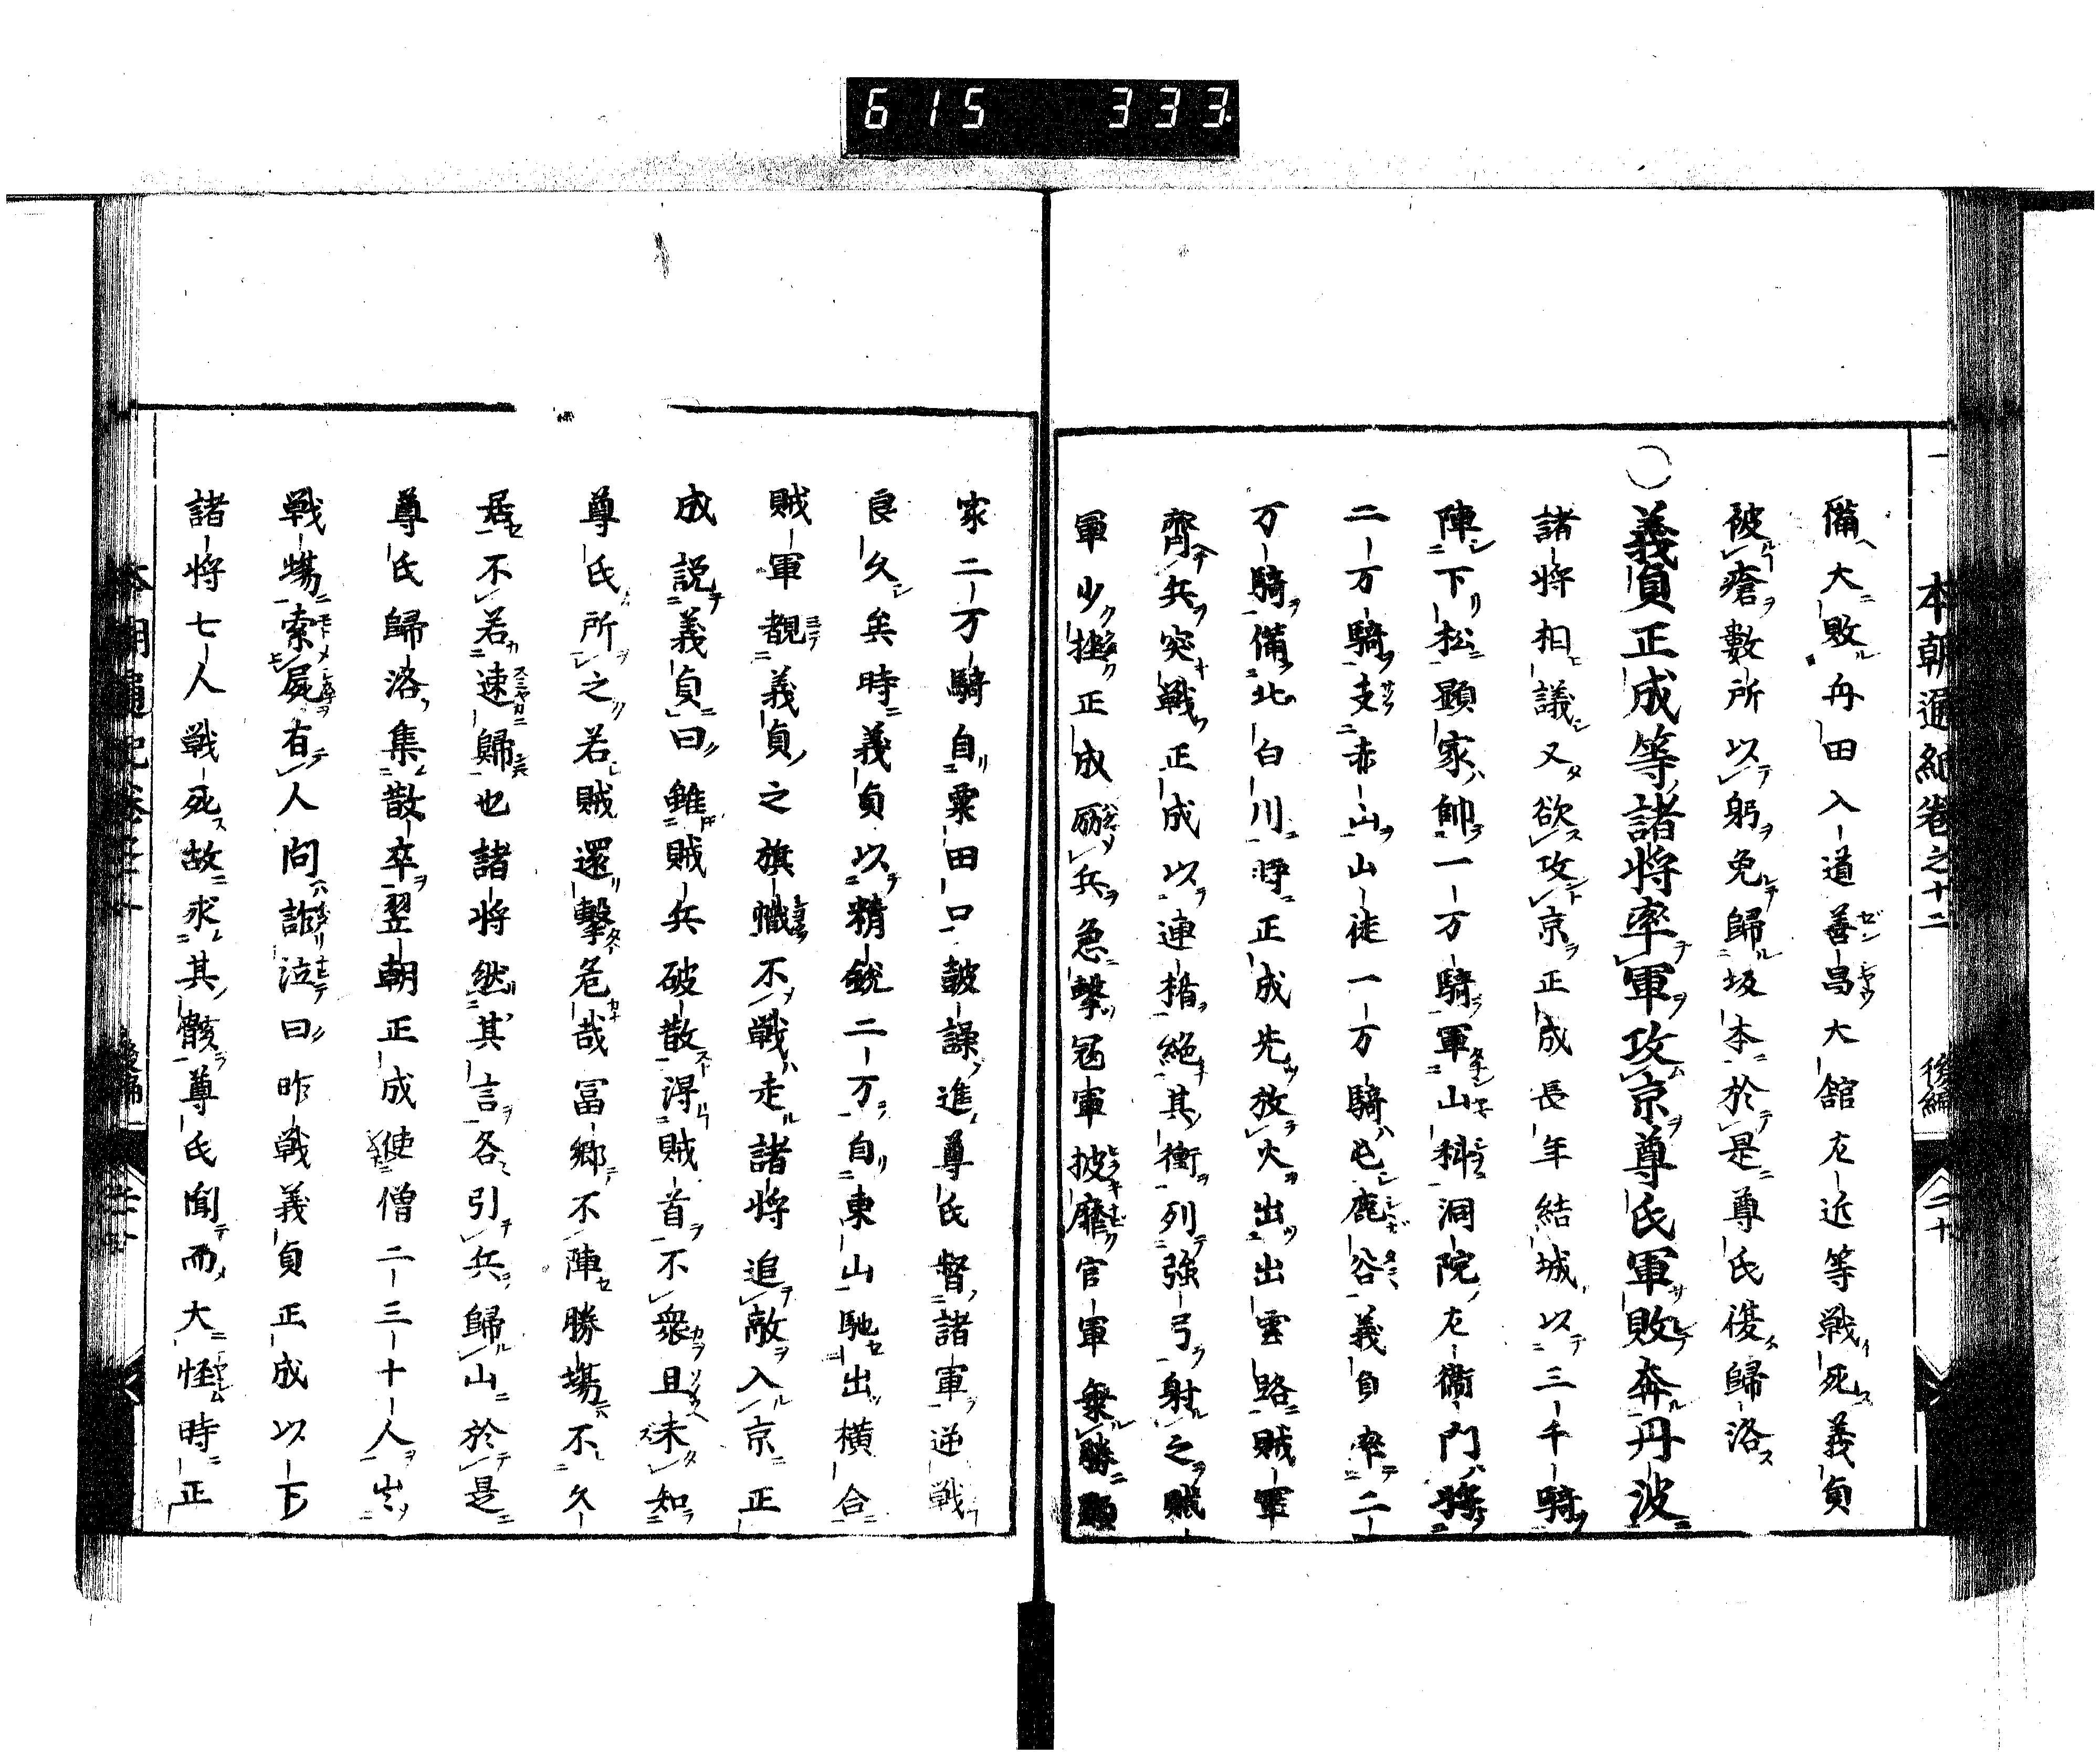 615 333.
本朝通紀卷之十二 後編 二十
備大敗舟田入道善昌大舘左近等戰死義貞
被瘡數所以躬免歸坂本於是尊氏復歸洛
○義貞正成等諸将率軍攻京尊氏軍敗奔丹波
諸将相議又欲攻京正成長年結城以三千騎
陣下松顯家帥一万騎軍山科洞院左衞門将
二万騎支赤山山徒一万騎屯鹿谷義貞率二
万騎備北白川時正成先放火出出雲路賊軍
齊兵突戰正成以連楯絶其衝列強弓射之賊
軍少挫正成勵兵急擊冦軍披靡官軍乗勝顯
家二万騎自粟田口皷譟進尊氏督諸軍逆戰
良久矣時義貞以精銳二万自東山馳出横合
賊軍覩義貞之旗幟不戰走諸将追敵入京正
成説義貞曰雖賊兵破散得賊首不衆且未知
尊氏所之若賊還擊危哉冨郷不陣勝塲不久
居不若速歸也諸将然其言各引兵歸山於是
尊氏歸洛集散卒翌朝正成使僧二三十人出
戰塲索屍有人問詐泣曰昨戰義貞正成以下
諸将七人戰死故求其骸尊氏聞而大怪時正